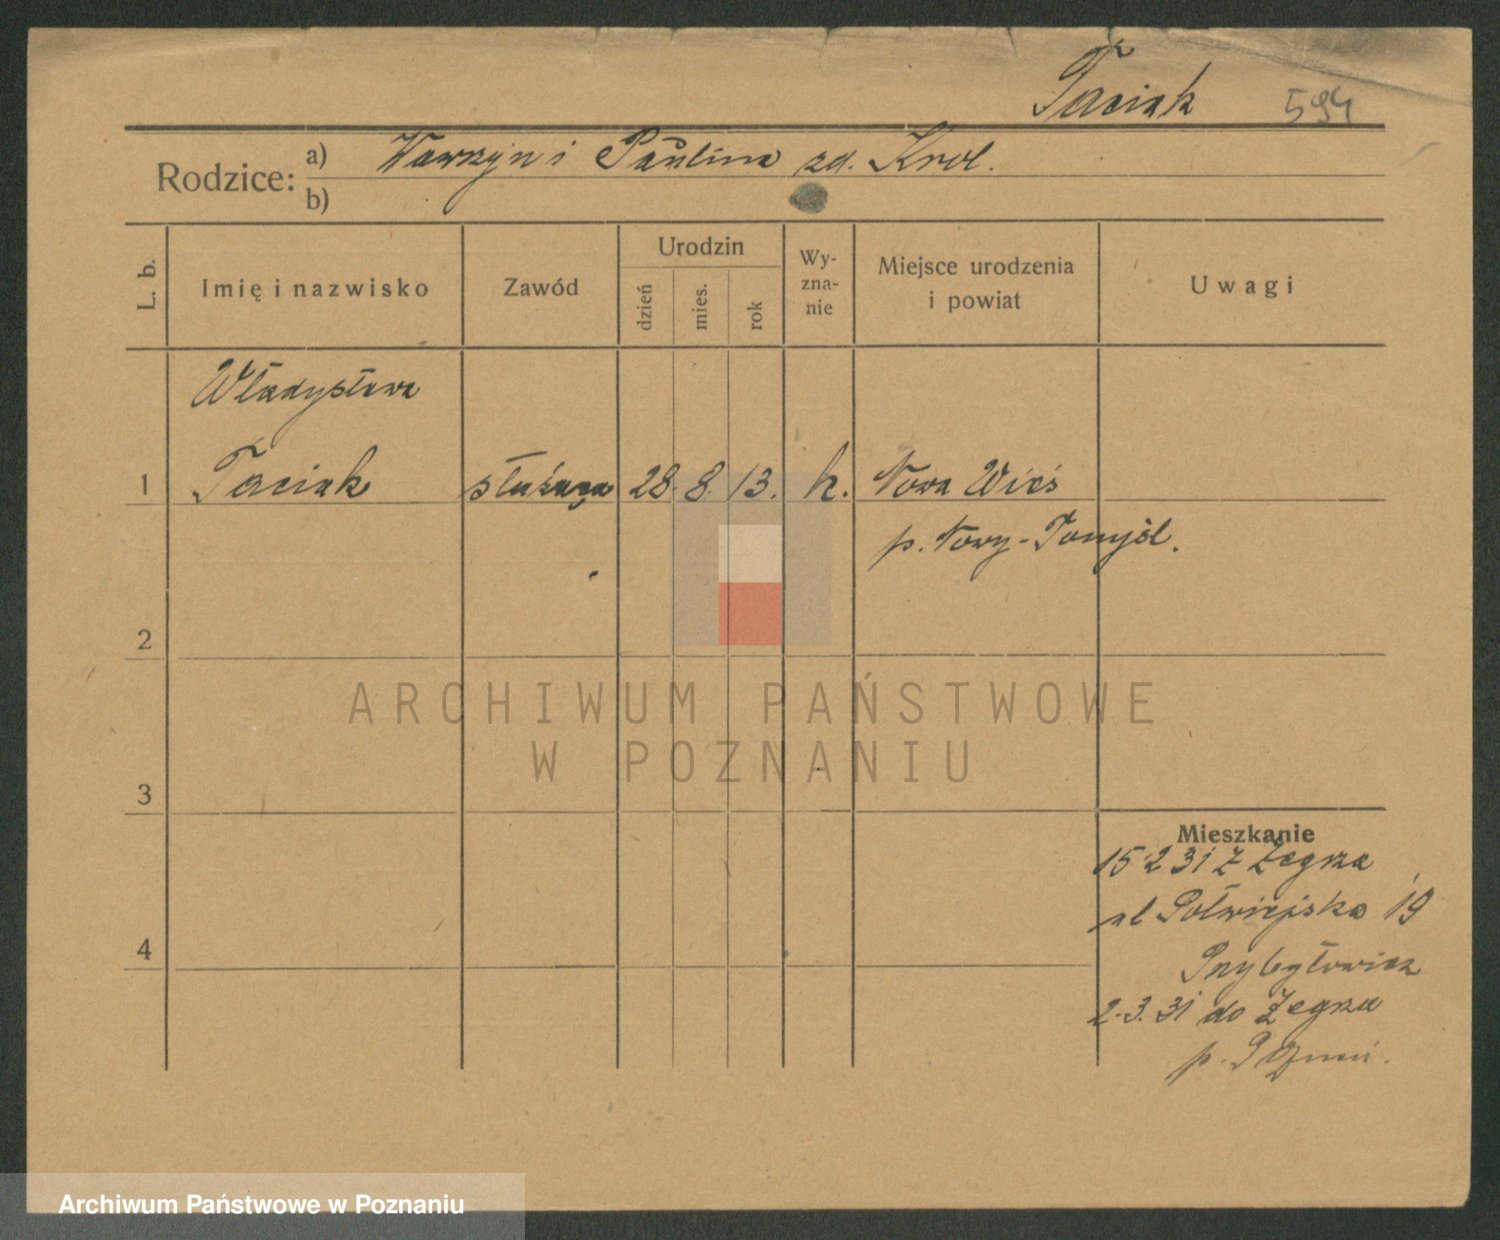 Taciak 594
Rodzice: a) Wawrzyn i Paulina zd. Krol.
b)
L. b. Imię i nazwisko Zawód Urodzin dzień mies. rok Wy-zna-nie Miejsce urodzenia i powiat Uwagi
Władysława
1 Taciak służąca 28. 8. 13. k. Nowa Wieś
p. Nowy-Tomyśl.
2
ARCHIWUM PAŃSTWOWE
W POZNANIU
3
Mieszkanie
15 2 31 z Żegrza
ul Półwiejska 19
4
2.3.31 do Żegrza
p. Poznań.
Archiwum Państwowe w Poznaniu